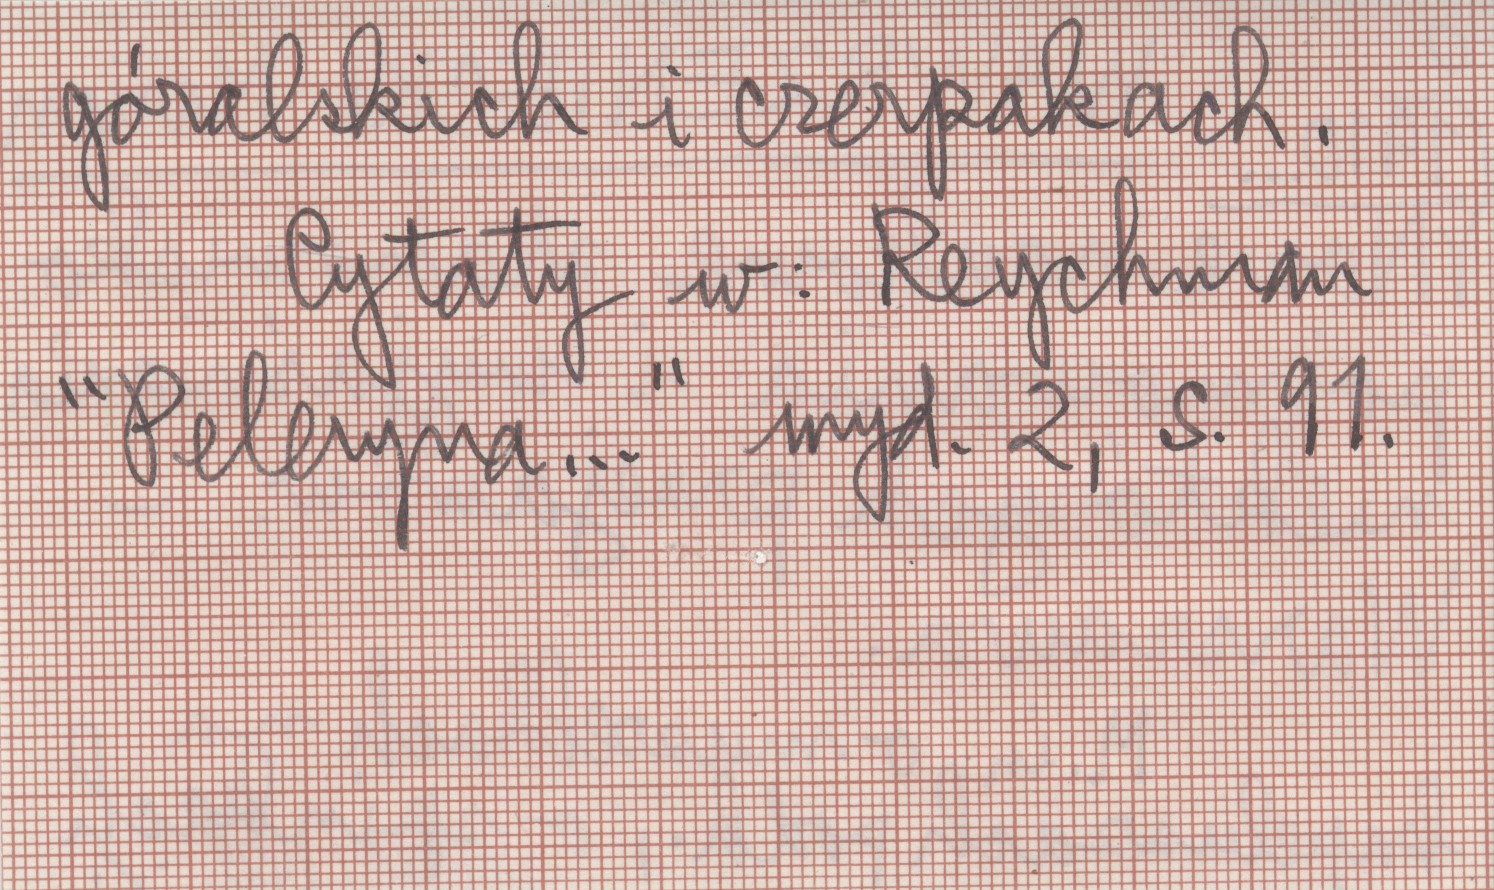 góralskich i czerpakach.
Cytaty w: Reychman
"Peleryna..." wyd. 2, s. 91.